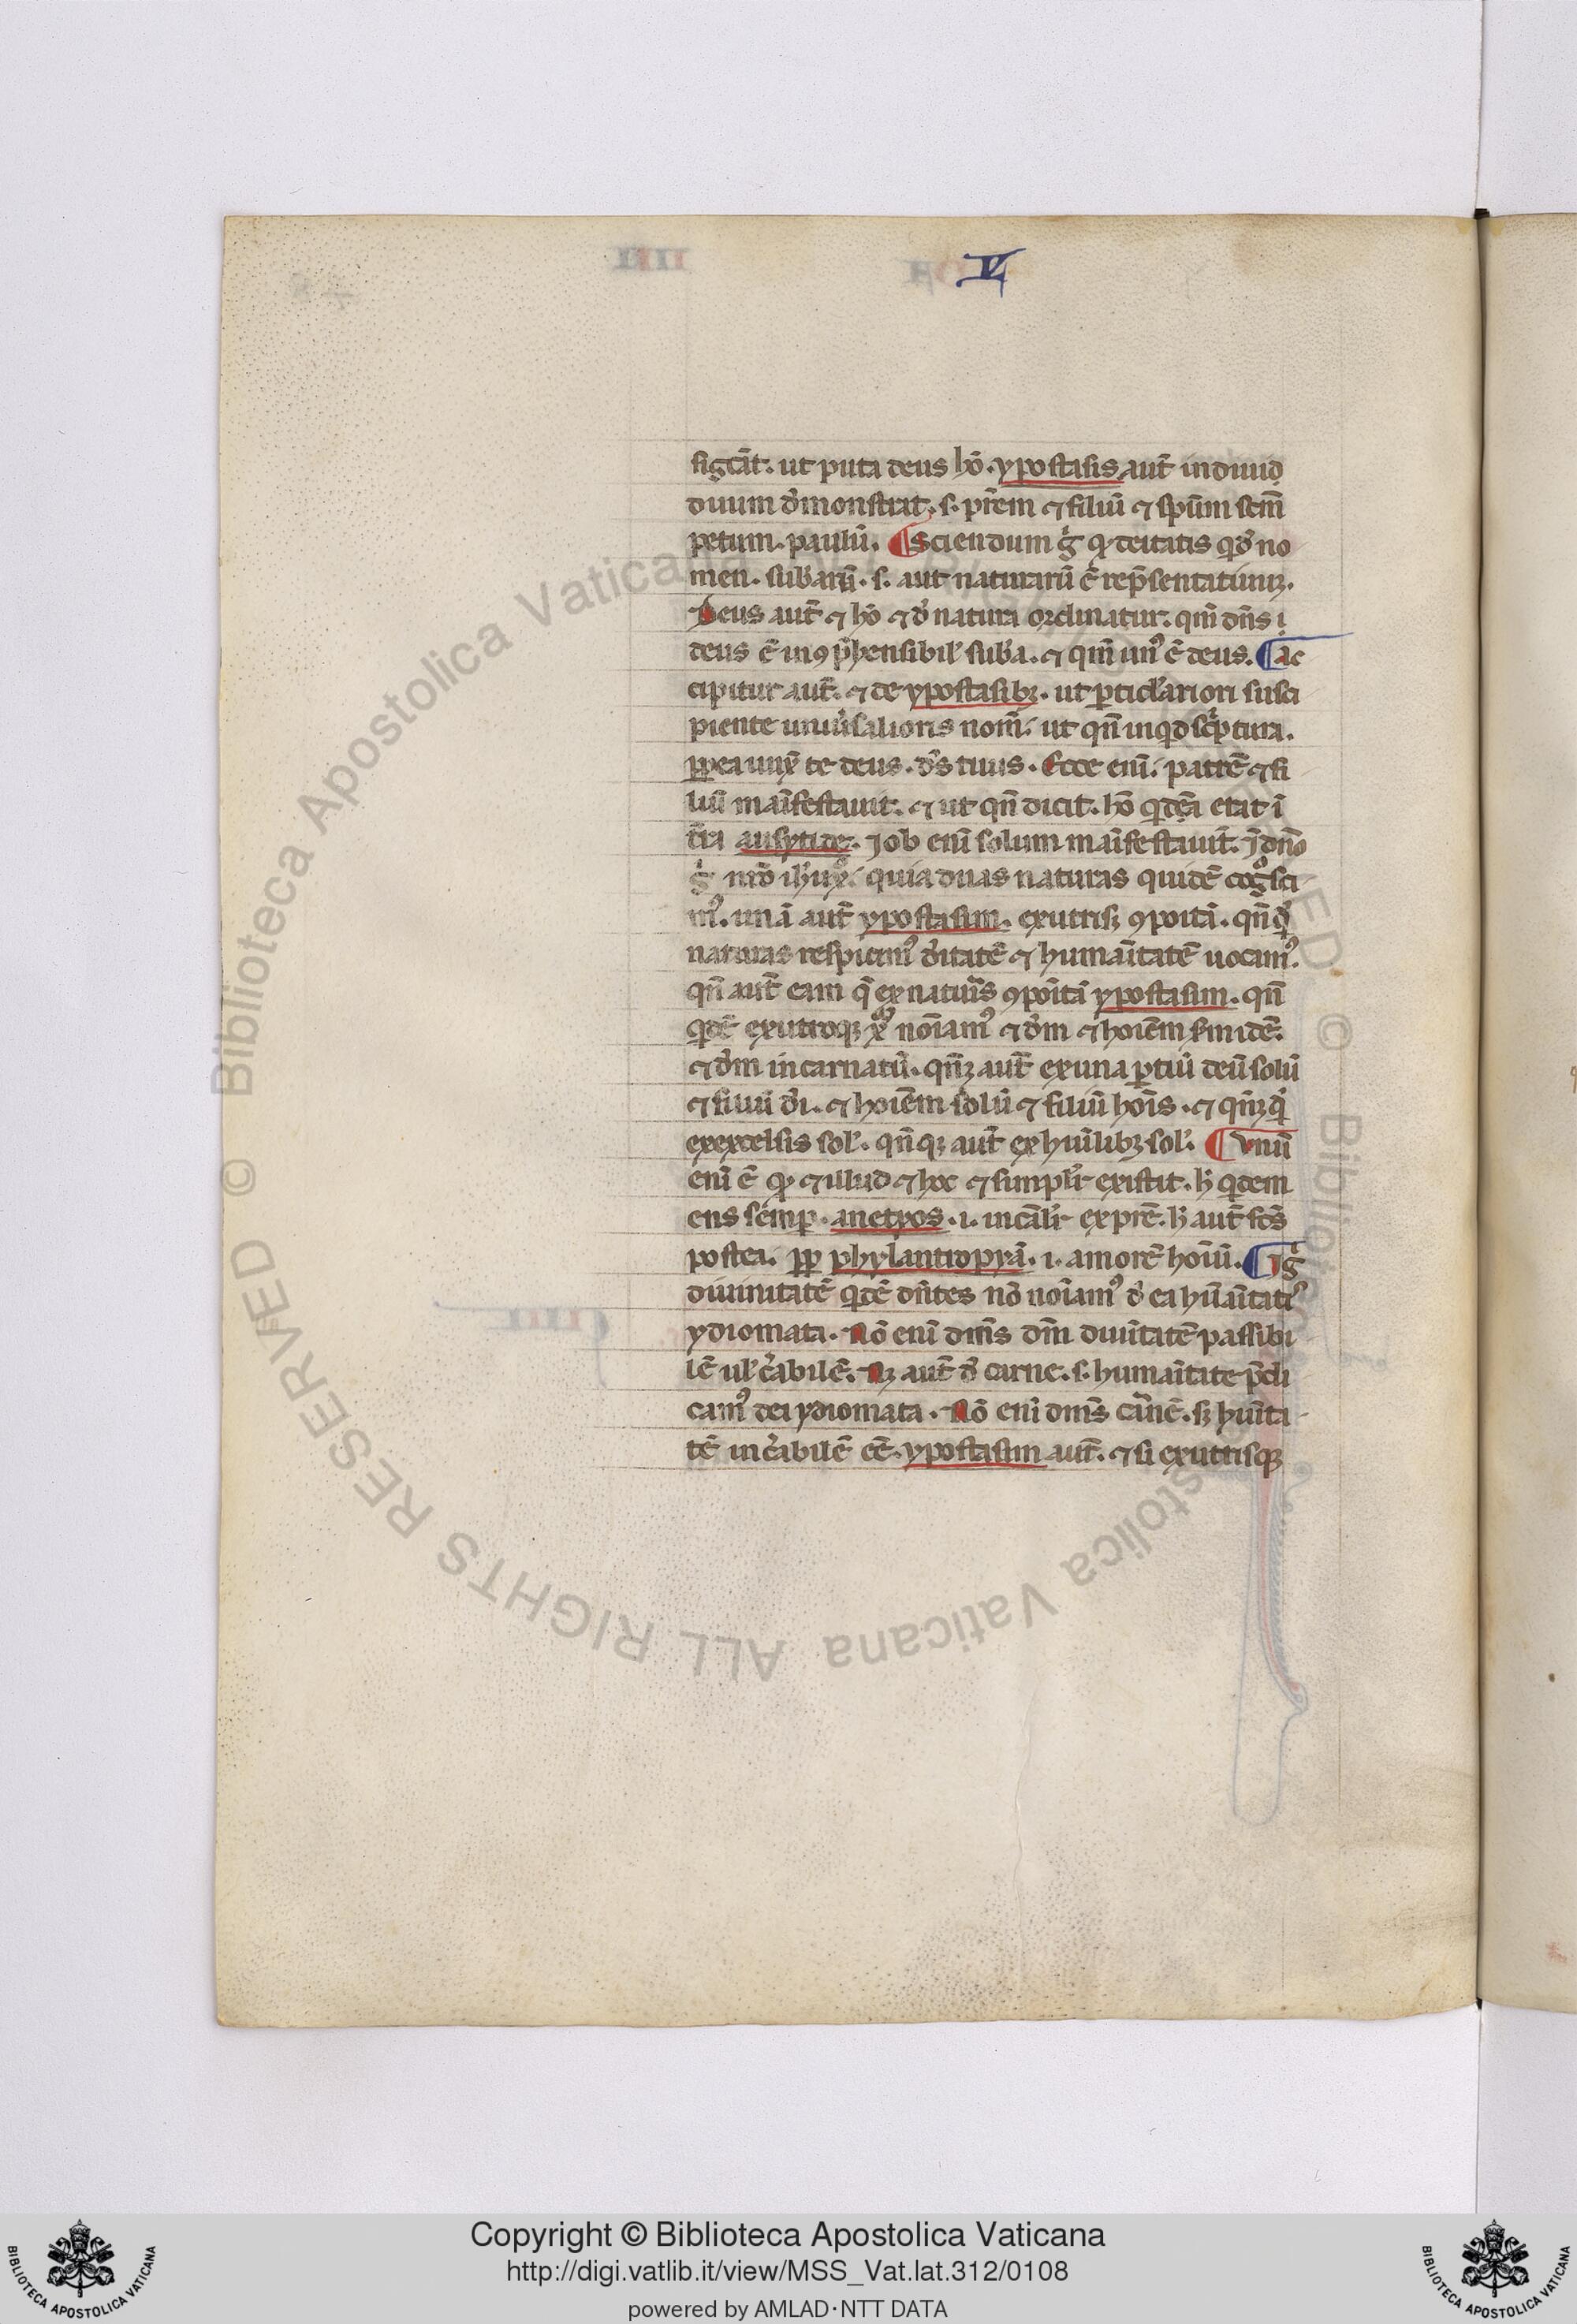 V
sigcāt. ut puta deus hō. ypostasis aut̄ indiuid
duum d̓monstrat. s. pr̄em ⁊ filiū ⁊ spūm scm̄
petrum. paulū. ¶ Sciendum gͥ qͥ deitatis qͥd̓ no
men. subarū. s. aut naturarū ē rep̄sentatiuuꝫ.
Deus aut̄ ⁊ hō ⁊ d̓ natura ordinatur. qm̄ dn̄s i
deus ē inꝯp̄hensibil̓ suba. ⁊ qm̄ unꝰ ē deus. ¶ ac
cipitur aut̄. ⁊ de ypostasibꝫ. ut ꝑticl̓ariori susci
piente uniu̓salioris nom̄. ut qn̄ inqͥd scͥptura.
ꝓpea unx̄ te deus. d̓s tuus. Ecce eni. patrē ⁊ fi
liū maīfestauit. ⁊ ut qn̄ dicit. hō qͥdā erat ī
tr̄a ausytide. Job enī solum maīfestauit̄. J dn̄o
gͥ nr̄o ih̓u xͦ. quia duas naturas quidē cogͦsci
mꝰ. unā aut̄ ypostasim. ex utrisqꝫ ꝯpoitā. qn̄ qͥ
naturas respicimꝰ d̓itatē ⁊ humaītatē uocamꝰ.
qn̄ aut̄ eam q̄ ex natur̄is ꝯpoitā ypostasim. qn̄
qͥdē ex utroqꝫ xͫ noīamꝰ ⁊ d̓m ⁊ hoīem sm idē.
⁊ d̓m incarnatū. qn̄qꝫ aut̄ ex una ꝑtiū deū solū
⁊ filiū d̓i. ⁊ hoīem solū ⁊ filiū hoīs. ⁊ qn̄qꝫ qͥ
ex excelsis sol̓. qn̄qꝫ aut̄ ex hūilibꝫ sol̓. ¶ Vnū
enī ē qͥ ⁊ illud ⁊ hoc ⁊ simpl̓r existit. h̓ qͥdem
ens semꝑ. anetyos. i. incāl̓r ex pr̄e. h̓ aut̄ fcs̄
postea. ꝓp phylantropyā. i. amorē hoīū. ¶ Jgͥ
diuinitatē qͥdē dn̄tes nō noīamꝰ d̓ ea hūaītatꝭ
ydiomata. Nō enī dīmꝰ dm̄ diuītatē passibi
lē ul̓ cͥabilē. Nꝫ aut̄ d̓ carne. s. humaītate p̄di
camꝰ dei ydiomata. Nō enī dīmꝰ carnē. sꝫ huīta
tē incͥabilē eē. ypostasim aut̄. ⁊ si ex utrisqꝫ
Copyright © Biblioteca Apostolica Vaticana
http://digi.vatlib.it/view/MSS_Vat.lat.312/0108
powered by AMLAD·NTT DATA